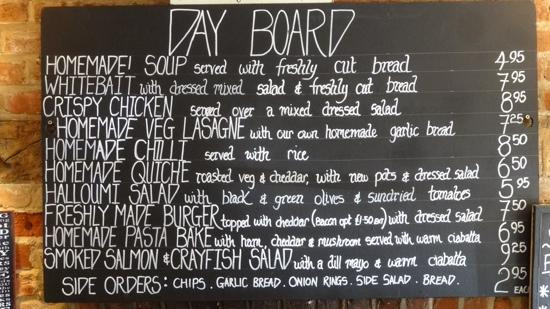 DAY BOARD
HOMEMADE! SOUP served with freshly cut bread 4.95
WHITEBAIT with dressed mixed salad & freshly cut bread 7.95
CRISPY CHICKEN served over a mixed dressed salad 8.95
HOMEMADE VEG LASAGNE with our own homemade garlic bread 7.25
HOMEMADE CHILLI served with rice 8.50
HOMEMADE QUICHE roasted veg & cheddar, with new pots & dressed salad 6.50
HALLOUMI SALAD with black & green olives & sundried tomatoes 5.95
FRESHLY MADE BURGER topped with cheddar (Bacon opt £1.50 ea) with dressed salad 7.50
HOMEMADE PASTA BAKE with ham, cheddar & mushroom served with warm ciabatta 6.95
SMOKED SALMON & CRAYFISH SALAD with a dill mayo & warm ciabatta 9.25
SIDE ORDERS: CHIPS. GARLIC BREAD. ONION RINGS. SIDE SALAD. BREAD. 2.95 EACH